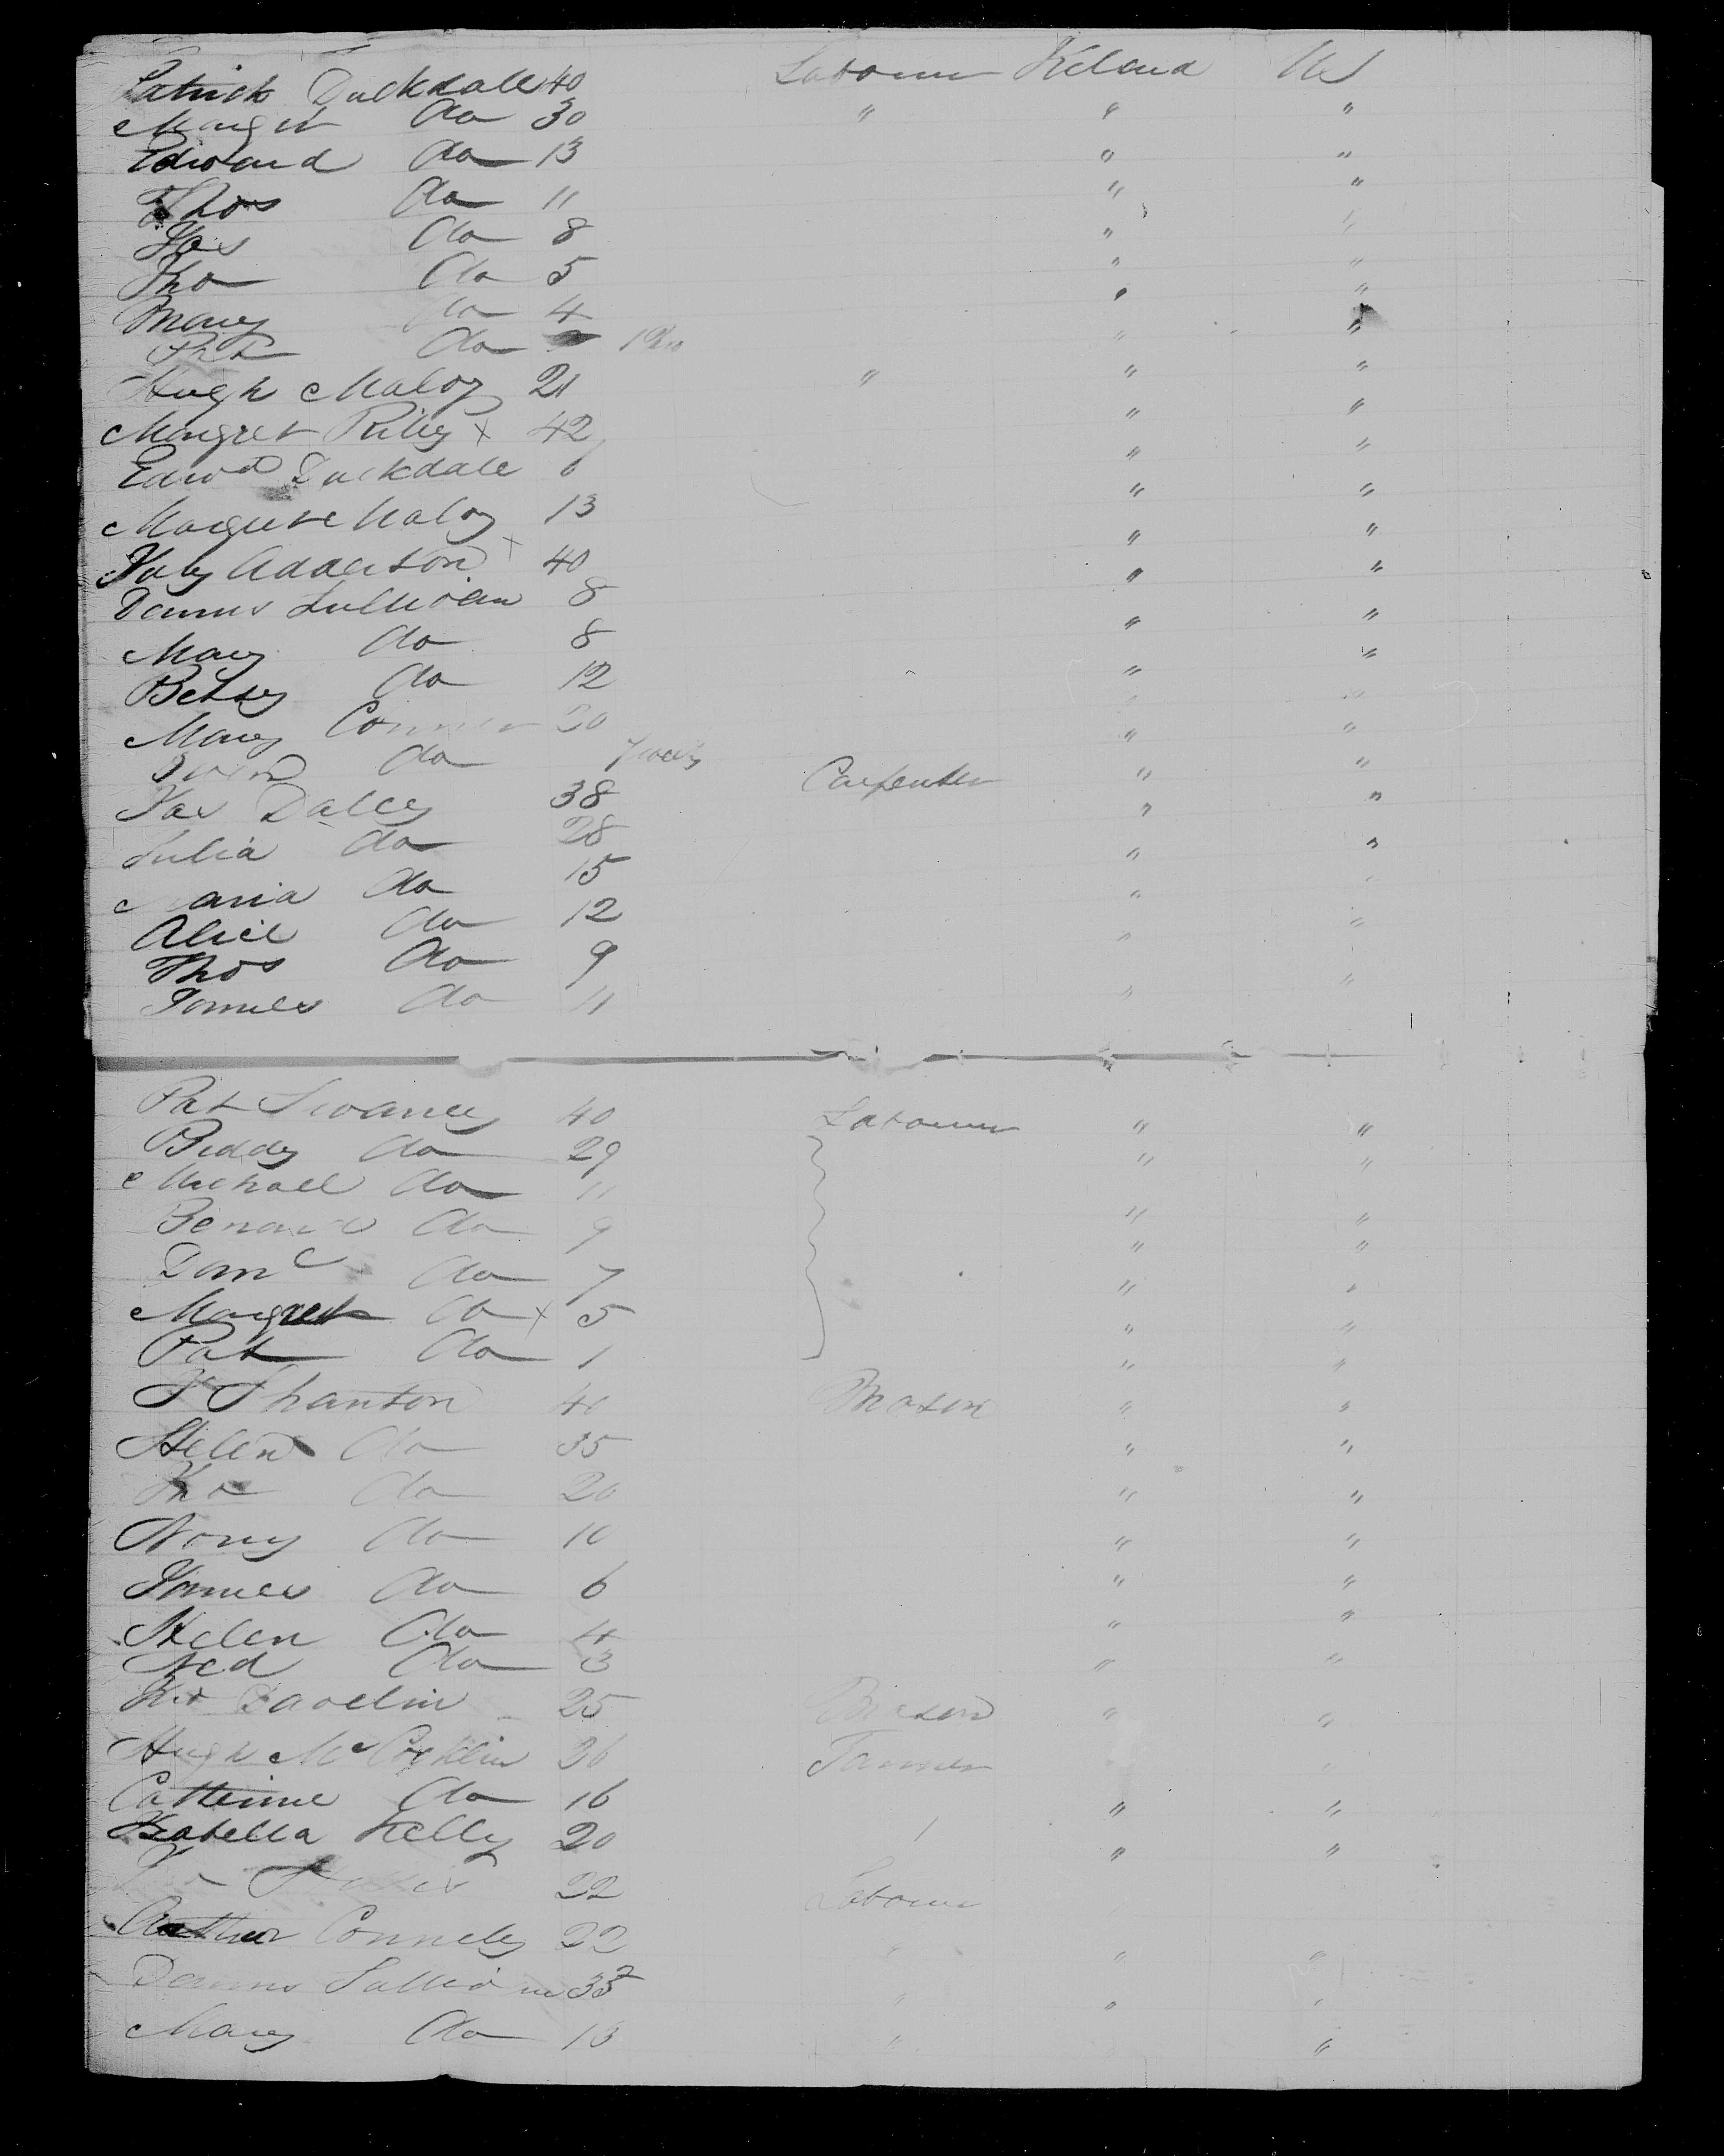 Patrick Duckdale 40 Labourer Ireland US
Margrt do 30 " " "
Edward do 13 " "
Thos do 11 " "
Jas do 8 " "
Jno do 5 " "
Mary do 4 " "
Pat do " "
Hugh Maloy 21 " " "
Margret Riley x 42 " "
Edwd Duckdale 6 " "
Margret Maloy 13 " "
July Adderson x 40 " "
Dennis Sullivan 8 " "
Mary do 8 " "
Betsey do 12 " "
Mary Conner 20 " "
do 7 weeks " "
Jas Daley 38 Carpenter " "
Julia do 28 " "
Maria do 15 " "
Alice do 12 " "
Thos do 9 " "
James do 11 " "
Pat Swaney 40 Labourer " "
Biddy do 29 " "
Michael do 11 " "
Benard do 9 " "
Danl do 7 " "
Margret do x 5 " "
Pat do 1 " "
Shanton 40 Mason " "
Helen do 35 " "
Jno do 20 " "
Nory do 10 " "
James do 6 " "
Helen do 4 " "
Ned do 3 " "
Davelin 25 Mason " "
Hugh Mc 26 "
Catterine do 16 " "
Isabella Kelly 20 " "
22 Labourer
Arthur Connely 22 " " "
Dennis Sullivan " " "
Mary do 13 " "